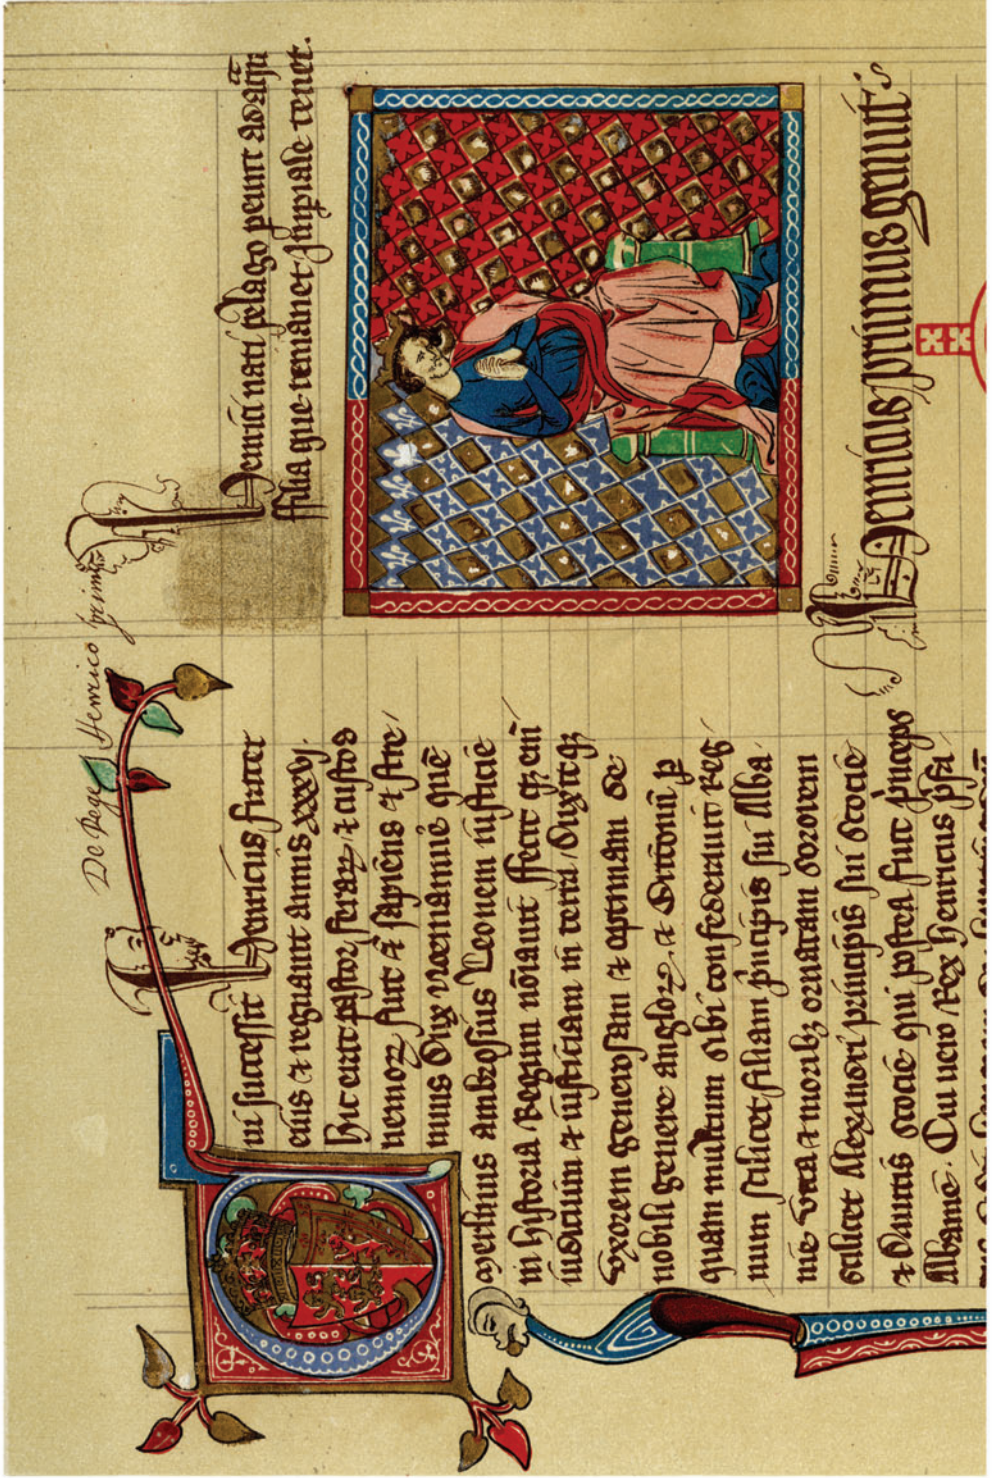 De Rege Henrico primo
ui successit Henricus frater
eius & regnauit annis xxxvj.
hic erat pastor feraꝝ & custos
nemoꝝ fuit &̄ sapiens & stre/
nuus Dux Noꝛmannie quē
Merlinus ambrosius Leonem iusticie
in hystoria Regum nōiauit ffecit qꝫ em̄/
iudicium & iusticiam in terra / Duxitqꝫ
vxorem generosam & optimam de
nobili genere angloꝝ & Britonū ꝑ
quam multum sibi confederauit Reg/
num scilicet filiam pͥncipis sui Alba/
nie vita & moribꝫ ornatam Sororem
scilicet Alexandri principis sui Scocie
& Dauitis Scocie qui postea fuit pͥnceps
Albanie. Cui uero Rex Henricus pͥsa/
Henrici nati pelago peiunt
ffilia que remanet Imperiale tenet.
Henricus primus genuit